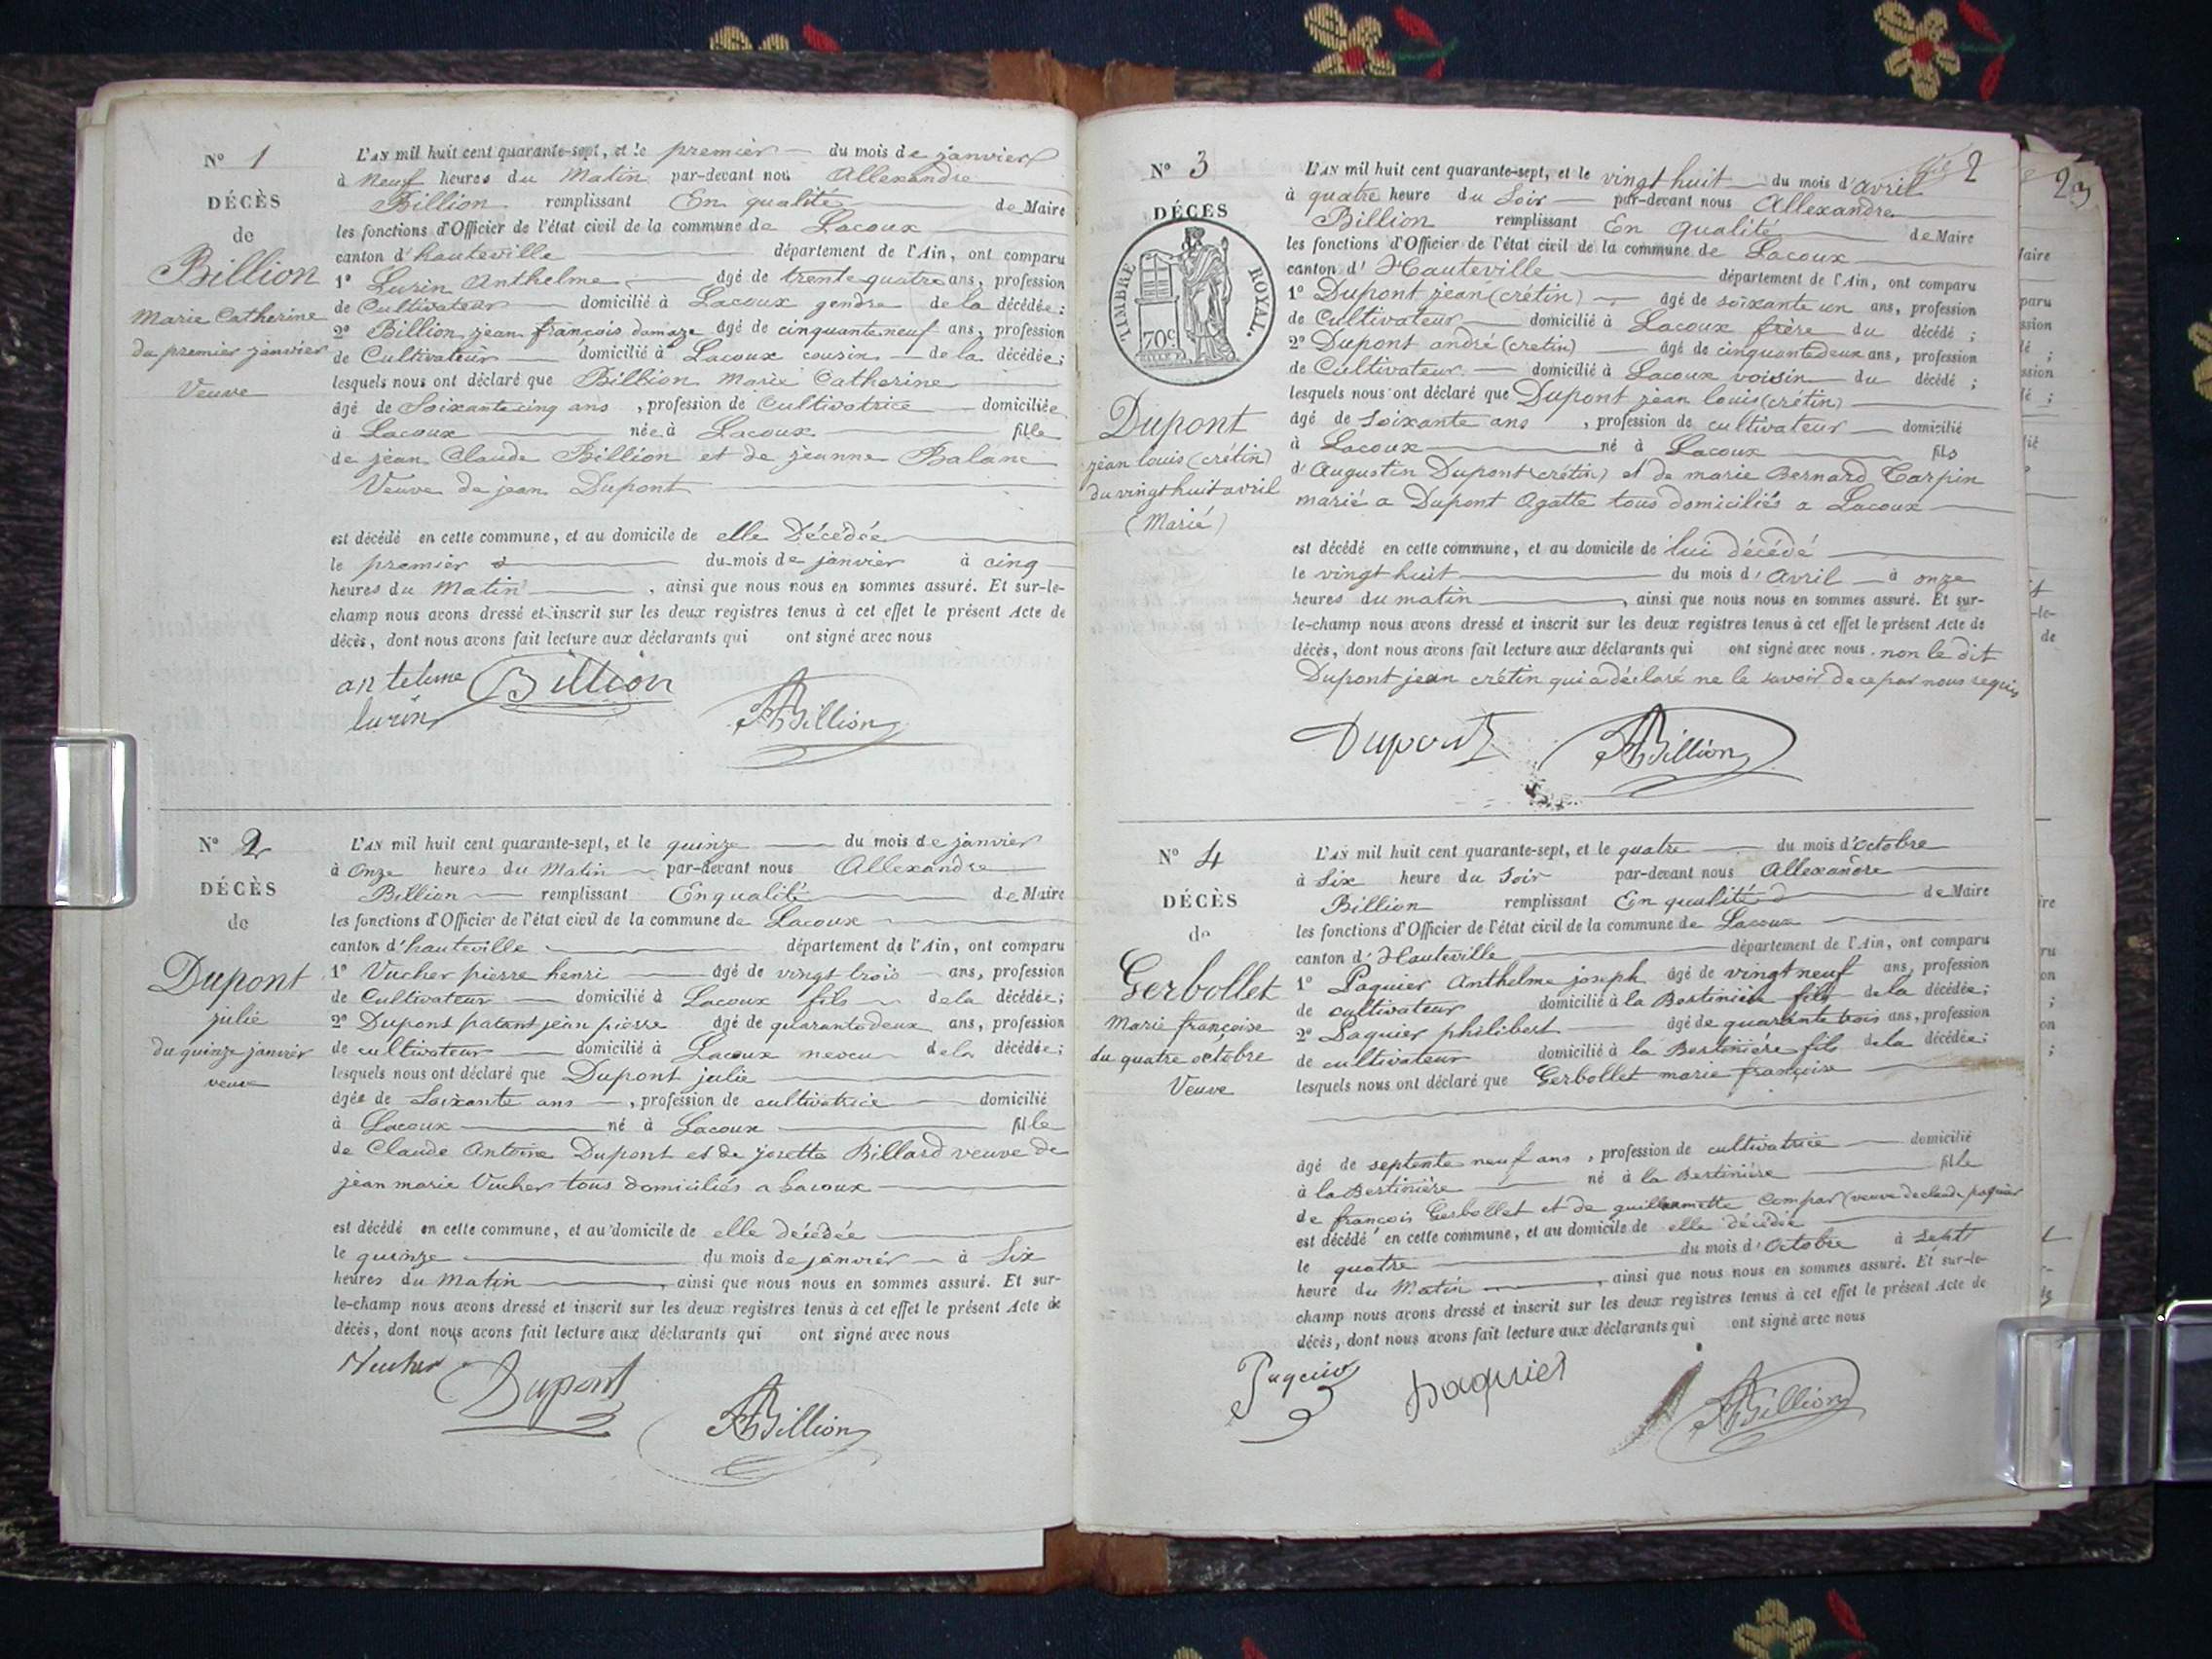 N° 1
DÉCÈS
de
Billion
Marie Catherine
du premier janvier
Veuve
L'AN mil huit cent quarante-sept, et le premier du mois de janvier
à Neuf heures du Matin par-devant nous Allexandre
Billion remplissant En qualité de Maire
les fonctions d'Officier de l'état civil de la commune de Lacoux
canton d'hauteville département de l'Ain, ont comparu
1° Lurin Anthelme âgé de trente quatre ans, profession
de Cultivateur domicilié à Lacoux gendre de la décédée;
2° Billion jean françois damaze âgé de cinquante neuf ans, profession
de Cultivateur domicilié à Lacoux cousin de la décédée;
lesquels nous ont déclaré que Billion Marie Catherine
âgé de Soixante cinq ans, profession de Cultivatrice domiciliée
à Lacoux née à Lacoux fille
de jean Claude Billion et de jeanne Balanc
Veuve de jean Dupont
est décédé en cette commune, et au domicile de elle Décédée
le premier du mois de janvier à cinq
heures du Matin, ainsi que nous nous en sommes assuré. Et sur-le-
champ nous avons dressé et inscrit sur les deux registres tenus à cet effet le présent Acte de
décès, dont nous avons fait lecture aux déclarants qui ont signé avec nous
antelme Billion
lurin ABillion
N° 2
DÉCÈS
de
Dupont
julie
du quinze janvier
veuve
L'AN mil huit cent quarante-sept, et le quinze du mois de janvier
à Onze heures du Matin par-devant nous Allexandre
Billion remplissant En qualité de Maire
les fonctions d'Officier de l'état civil de la commune de Lacoux
canton d'hauteville département de l'Ain, ont comparu
1° Vucher pierre henri âgé de vingt trois ans, profession
de Cultivateur domicilié à Lacoux fils de la décédée;
2° Dupont patant jean pierre âgé de quarante deux ans, profession
de cultivateur domicilié à Lacoux neveu de la décédée;
lesquels nous ont déclaré que Dupont julie
âgée de Soixante ans, profession de cultivatrice domicilié
à Lacoux né à Lacoux fille
de Claude Antoine Dupont et de josette Billard veuve de
jean marie Vucher tous domiciliés a Lacoux
est décédé en cette commune, et au domicile de elle décédée
le quinze du mois de janvier à Six
heures du Matin, ainsi que nous nous en sommes assuré. Et sur-
le-champ nous avons dressé et inscrit sur les deux registres tenus à cet effet le présent Acte de
décès, dont nous avons fait lecture aux déclarants qui ont signé avec nous
Vucher Dupont ABillion
2
23
N° 3
DÉCÈS
TIMBRE ROYAL.
70c
Dupont
jean louis (crétin)
du vingt huit avril
(Marié)
L'AN mil huit cent quarante-sept, et le vingt huit du mois d'avril
à quatre heure du Soir par-devant nous Allexandre
Billion remplissant En qualité de Maire
les fonctions d'Officier de l'état civil de la commune de Lacoux
canton d'Hauteville département de l'Ain, ont comparu
1° Dupont jean (crétin) âgé de soixante un ans, profession
de Cultivateur domicilié à Lacoux frère du décédé;
2° Dupont andré (cretin) âgé de cinquante deux ans, profession
de Cultivateur domicilié à Lacoux voisin du décédé;
lesquels nous ont déclaré que Dupont jean louis (crétin)
âgé de Soixante ans, profession de cultivateur domicilié
à Lacoux né à Lacoux fils
d'Augustin Dupont (crétin) et de marie Bernard Carpin
marié a Dupont Agatte tous domiciliés a Lacoux
est décédé en cette commune, et au domicile de lui décédé
le vingt huit du mois d'Avril à onze
heures du matin, ainsi que nous nous en sommes assuré. Et sur-
le-champ nous avons dressé et inscrit sur les deux registres tenus à cet effet le présent Acte de
décès, dont nous avons fait lecture aux déclarants qui ont signé avec nous. non le dit
Dupont jean crétin qui a déclaré ne le savoir de ce par nous requis
Dupont ABillion
N° 4
DÉCÈS
de
Gerbollet
Marie françoise
du quatre octobre
Veuve
L'AN mil huit cent quarante-sept, et le quatre du mois d'octobre
à Six heure du Soir par-devant nous Allexandre
Billion remplissant En qualité de Maire
les fonctions d'Officier de l'état civil de la commune de Lacoux
canton d'Hauteville département de l'Ain, ont comparu
1° Paquier Anthelme joseph âgé de vingt neuf ans, profession
de cultivateur domicilié à la Bertinière fils de la décédée;
2° Paquier philibert âgé de quarante trois ans, profession
de cultivateur domicilié à la Bertinière fils de la décédée;
lesquels nous ont déclaré que Gerbollet marie françoise
âgé de septente neuf ans, profession de cultivatrice domicilié
à la Bertinière né à la Bertinière fille
de françois Gerbollet et de guillermette Compar (veuve de claude paquier
est décédé en cette commune, et au domicile de elle décédée
le quatre du mois d'Octobre à Sept
heure du Matin, ainsi que nous nous en sommes assuré. Et sur-le-
champ nous avons dressé et inscrit sur les deux registres tenus à cet effet le présent Acte de
décès, dont nous avons fait lecture aux déclarants qui ont signé avec nous
Paquier paquier ABillion